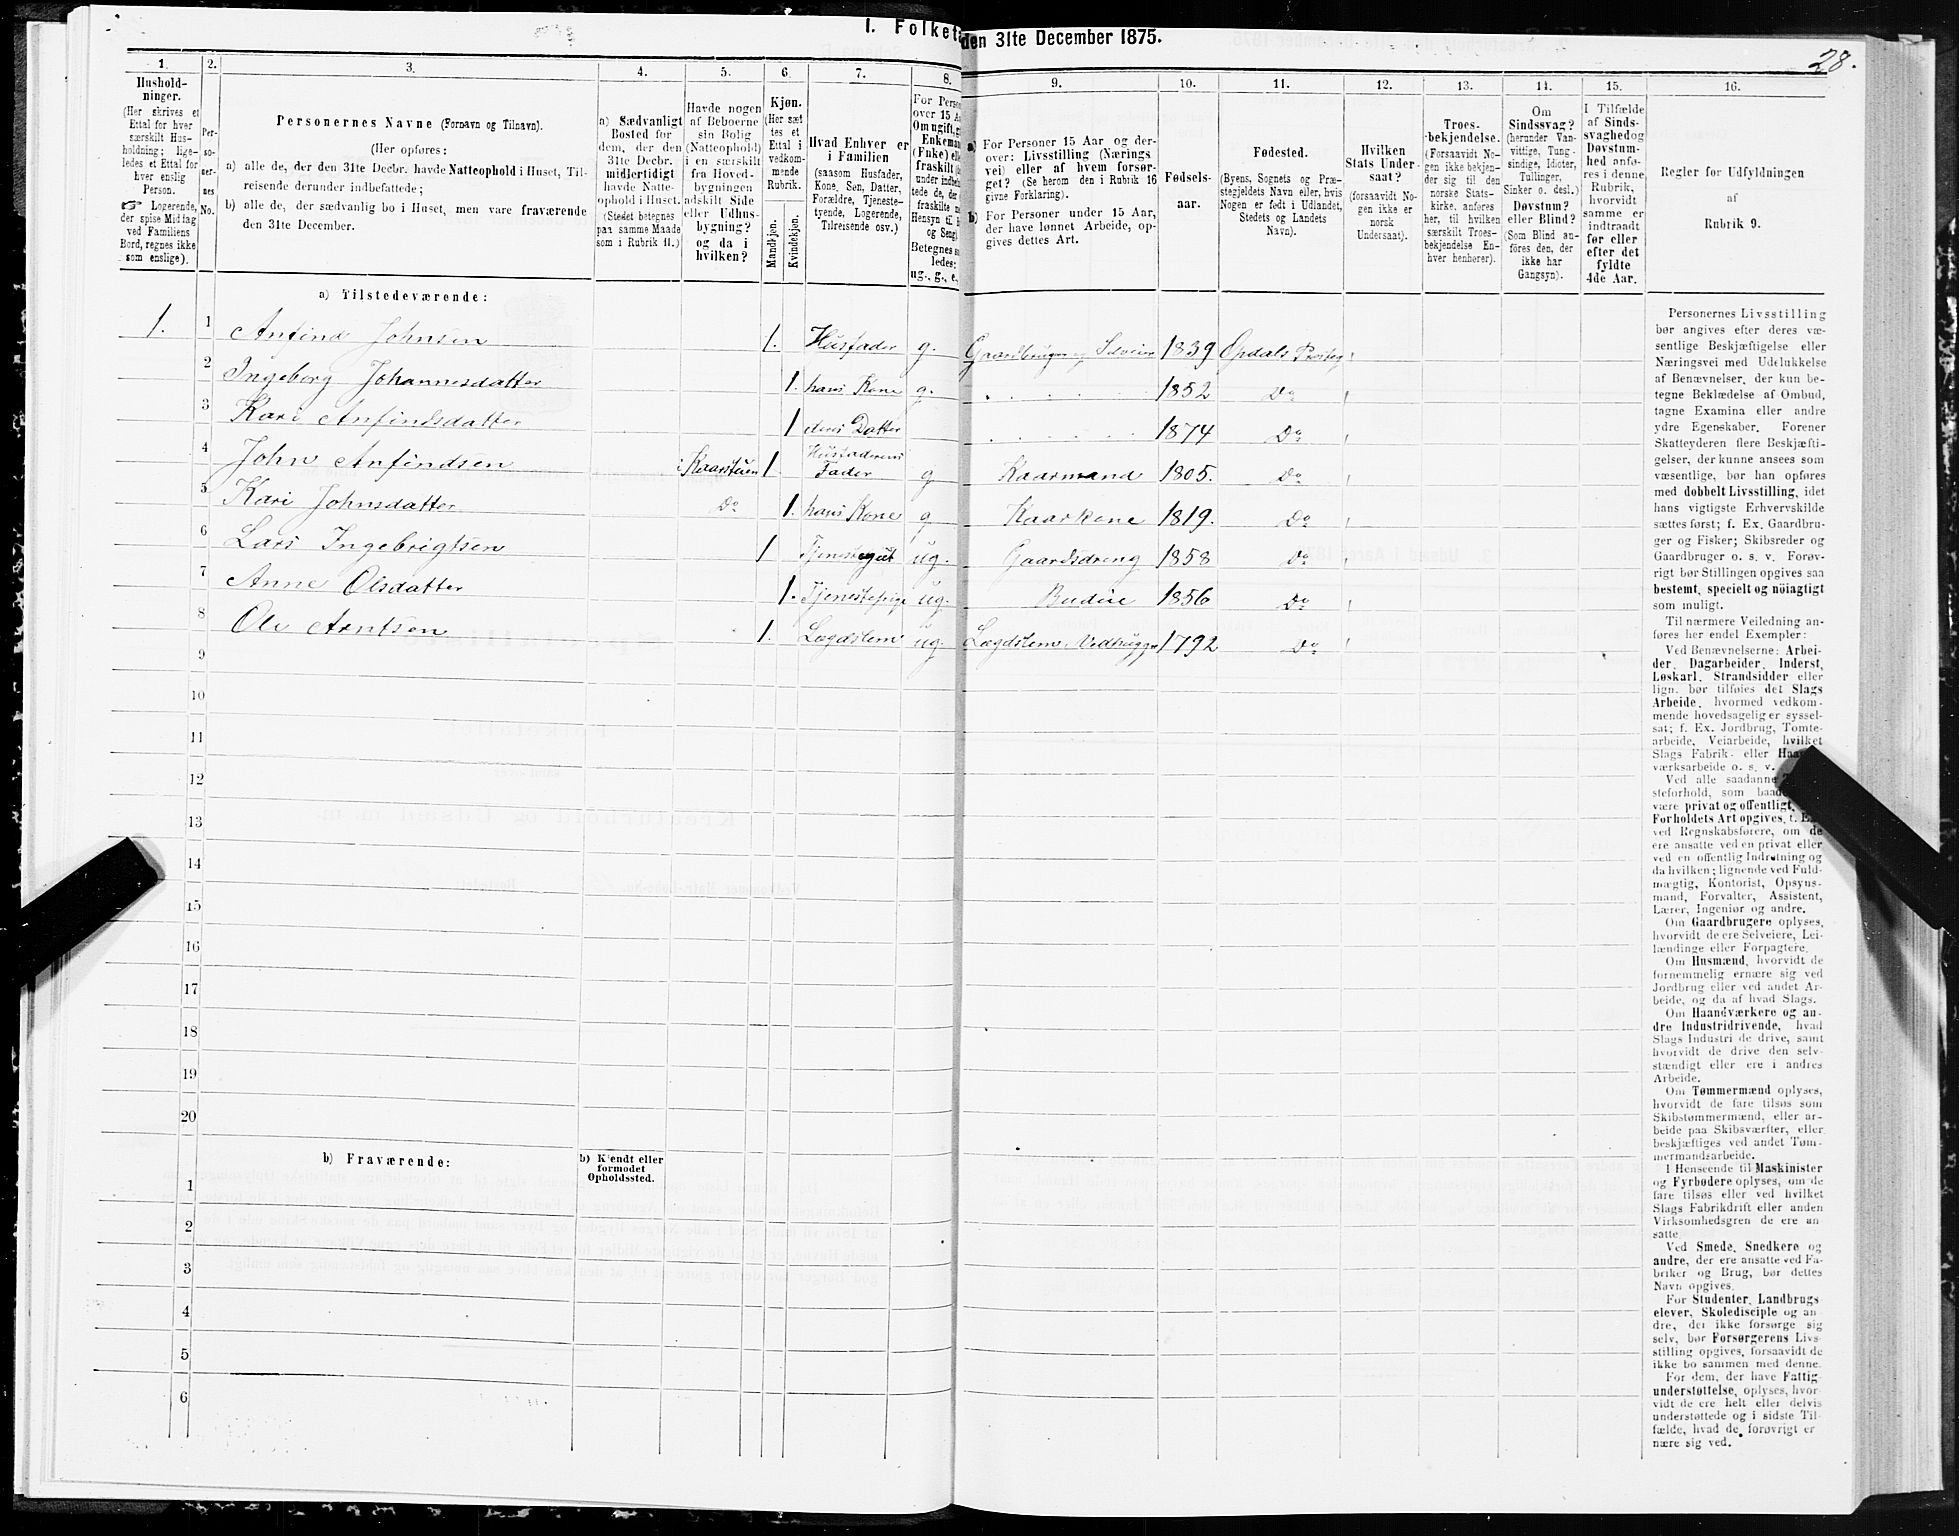 I. Folket den 31te December 1875.
28.
1. 2. 3. 4. 5. 6. 7. 8. 9. 10. 11. 12. 13. 14. 15. 16.
Hushold-
ninger.
(Her skrives et
Ettal for hver
særskilt Hus-
holdning; lige-
ledes et Ettal for
hver enslig
Person.
☞ Logerende,
der spise Middag
ved Familiens
Bord, regnes ikke
som enslige).
Per-
so-
ner-
nes
No.
Personernes Navne (Fornavn og Tilnavn).
(Her opføres:
a) alle de, der den 31te Decbr. havde Natteophold i Huset, Til-
reisende derunder indbefattede;
b) alle de, der sædvanlig bo i Huset, men vare fraværende
den 31te December.
a) Sædvanligt
Bosted for
dem, der den
31te Decbr.
midlertidigt
havde Natte-
ophold i Huset.
(Stedet betegnes
paa samme Maade
som i Rubrik 11.)
Havde nogen
af Beboerne
sin Bolig
(Natteophold)
i en særskilt
fra Hoved-
bygningen
adskilt Side
eller Udhus-
bygning?
og da i
hvilken?
Kjøn.
(Her sæt
tes et
Ettal i
vedkom-
mende
Rubrik.
Mandkjøn.
Kvindekjøn.
Hvad Enhver er
i Familien
(saasom Husfader,
Kone, Søn, Datter,
Forældre, Tjeneste-
tyende, Logerende,
Tilreisende osv.)
For Person
over 15 Aa
Om ugift, g
Enkeman
(Fnke) ell
fraskilt
ug., g., e,
a) For Personer 15 Aar og der-
over: Livsstilling (Nærings
vei) eller af hvem forsør-
get? (Se herom den i Rubrik 16
givne Forklaring).
b) For Personer under 15 Aar,
der have lønnet Arbeide, op-
gives dettes Art.
Fødsels-
aar.
Fødested.
(Byens, Sognets og Præ-
stegjeldets Navn eller, hvis
Nogen er født i Udlandet,
Stedets og Landets
Navn).
Hvilken
Stats Under-
saat?
(forsaavidt No-
gen ikke er
norsk
Undersaat).
Troes-
bekjendelse.
(Forsaavidt No-
gen ikke bekjen-
der sig til den
norske Stats-
kirke, anføres
her, til hvilken
særskilt Troes-
bekjendelse En-
hver henhører).
Om
Sindssvag?
(herunder Van-
vittige, Tung-
sindige, Idioter,
Tullinger,
Sinker o. desl.)
Døvstum?
eller Blind?
(Som Blind an-
føres den, der
ikke har
Gangsyn).
I Tilfælde
af Sinds-
svaghed og
Døvstum-
hed anfø-
res i denne
Rubrik,
hvorvidt
samme er
indtraadt
før eller
efter det
fyldte
4de Aar.
Regler for Udfyldningen
af
Rubrik 9.
a) Tilstedeværende:
1. 1 Anfind Johnsen 1. Husfader g. Gaardbruger og Selveier 1839 Opdals Prsteg
2 Ingeborg Johannesdatter 1. hans Kone g. 1852 Do
3 Kari Anfindsdatter 1 deres Datter 1874 Do
4 John Anfindsen i Kaarstuen 1. Husfaderens Fader g Kaarmand 1805. Do
5 Kari Johnsdatter Do 1. hans Kone g Kaarkone 1819. Do
6 Lars Ingebrigtsen 1 Tjenestegut ug. Gaardsdreng 1858 Do
7 Anne Olsdatter 1. Tjenestepige ug. Budeie 1856 Do
8 Ole Arntsen 1. Lægdslem ug. Lægdslem, Vedhugger 1792 Do
9
10
11
12
13
14
15
16
17
18
19
20
b) Fraværende:
b) Kjendt eller
formodet
Opholdssted.
1
2
3
4
5
6
Personernes Livsstilling
bør angives efter deres væ-
sentlige Beskjæftigelse eller
Næringsvei med Udelukkelse
af Benævnelser, der kun be-
tegne Beklædelse af Ombud,
tagne Examina eller andre
ydre Egenskaber. Forener
Skatteyderen flere Beskjæfti-
gelser, der kunne ansees som
væsentlige, bør han opføres
med dobbelt Livsstilling, idet
hans vigtigste Erhvervskilde
sættes først; f. Ex. Gaardbru-
ger og Fisker; Skibsreder og
Gaardbruger o. s. v. Forøv-
rigt bør Stillingen opgives saa
bestemt, specielt og nøiagtigt
som muligt.
Til nærmere Veiledning an-
føres her endel Exempler:
Ved Benævnelserne: Arbei-
der, Dagarbeider, Inderst,
Løskarl, Strandsidder eller
lign. bør tilføies det Slags
Arbeide, hvormed vedkom-
mende hovedsagelig er syssel-
sat; f. Ex. Jordbrug, Tomte-
arbeide, Veiarbeide, hvilket
Slags Fabrik- eller Haand
værksarbeide o. s. v.
Ved alle saadanne
steforhold, som baade
være privat og offentligt,
Forholdets Art opgives, f. Ex
ved Regnskabsførere, om de
ere ansatte ved en privat eller
ved en offentlig Indretning og
da hvilken; lignende ved Fuld-
mægtig, Kontorist, Opsyns-
mand, Forvalter, Assistent,
Lærer, Ingeniør og andre.
Om Gaardbrugere oplyses,
hvorvidt de ere Selveiere, Lei-
lændinge eller Forpagtere.
Om Husmænd, hvorvidt de
fornemmelig ernære sig ved
Jordbrug eller ved andet Ar-
beide, og da af hvad Slags.
Om Haandværkere og an-
dre Industridrivende, hvad
Slags Industri de drive, samt
hvorvidt de drive den selv-
stændigt eller ere i andres
Arbeide.
Om Tømmermænd oplyses,
hvorvidt de fare tilsøs som
Skibstømmermænd, eller ar-
beide paa Skibsværfter, eller
beskjæftiges ved andet Tøm-
mermandsarbeide.
I Henseende til Maskinister
og Fyrbødere oplyses, om de
fare tilsøs eller ved hvilket
Slags Fabrikdrift eller anden
Virksomhedsgren de ere an
satte.
Ved Smede, Snedkere og
andre, der ere ansatte ved Fa-
briker og Brug, bør dettes
Navn opgives.
For Studenter, Landbrugs
elever, Skoledisciple og an-
dre, der ikke forsørge sig
selv, bør Forsørgerens Livs-
stilling opgives, forsaavidt de
ikke bo sammen med denne.
For dem, der have Fattig-
understøttelse, oplyses, hvor-
vidt de ere helt eller delvis
understøttede og i sidste Til-
fælde, hvad de forøvrigt er
nære sig ved.